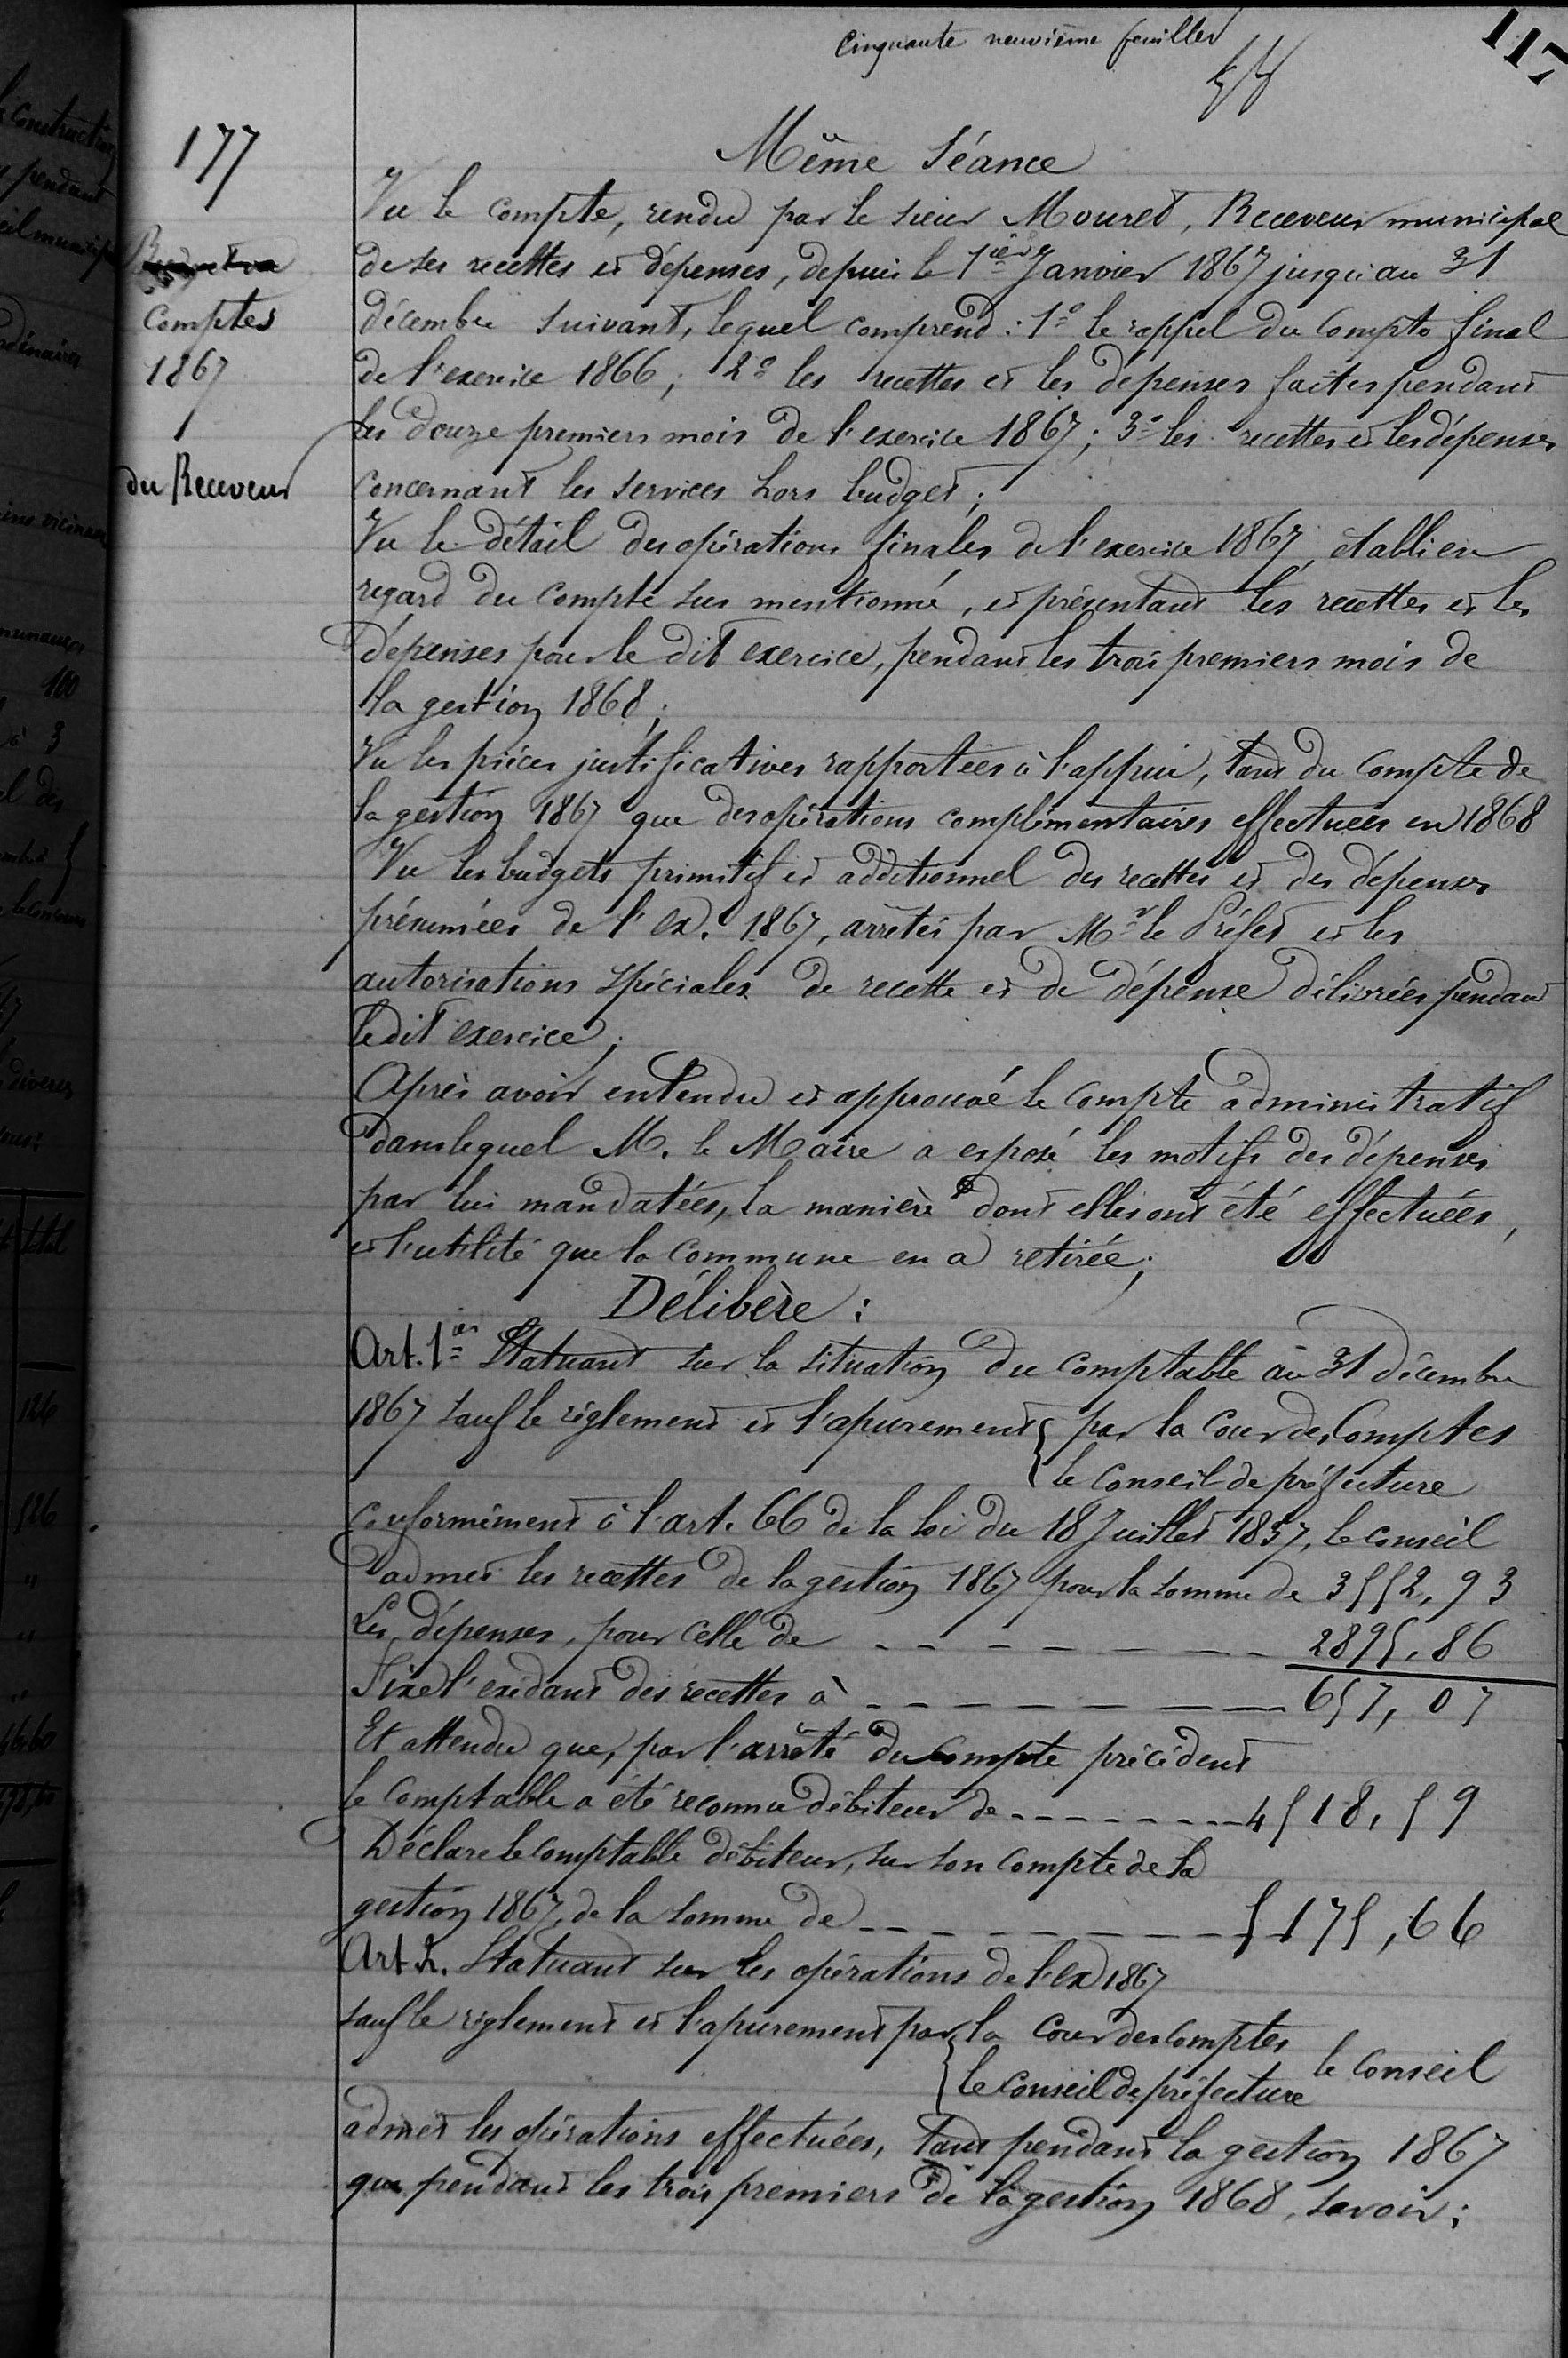 Cinquante neuvième feuillet
117
177
Comptes
1867
du Receveur
Même Séance
Vu le compte, rendu par le sieur Mouret, Receveur municipal
de ses recettes et dépenses, depuis le 1ier Janvier 1867 jusqu'au 31
décembre suivant, lequel comprend : 1º le rappel du Compte final
de l'exercice 1866 ; 2º les recettes et les dépenses faites pendant
les douze premiers mois de l'exercice 1867 ; 3º les recettes et les dépenses
concernant les services hors budget ;
Vu le détail des opérations finales de l'exercice 1867, établi en
regard du compte sus mentionné, et présentant les recettes et les
dépenses pour le dit exercice, pendant les trois premiers mois de
la gestion 1868 ;
Vu les pièces justificatives rapportées à l'appui, tant du Compte de
la gestion 1867 que des opérations complémentaires effectuées en 1868
Vu les budgets primitif et additionnel des recettes et des dépenses
présumées de l'ex. 1867, arrêtés par Mr le Préfet et les
autorisations spéciales de recette et de dépense délivrées pendant
le dit exercice ;
Après avoir entendu et approuvé le compte administratif
dans lequel M. le Maire a exposé les motifs des dépenses
par lui mandatées, la manière dont elles ont été effectuées,
et l'utilité que la Commune en a retirée ;
Délibère :
Art. 1er Statuant sur la situation du comptable au 31 décembre
1867 sauf le règlement et l'apurement { par la Cour des Comptes
{ le Conseil de préfecture
conformément à l'art. 66 de la loi du 18 Juillet 1837, le conseil
admet les recettes de la gestion 1867 pour la somme de 3552,93
Les dépenses, pour celle de - - - - - - 2895,86
Fixe l'exédant des recettes à - - - - - - 657,07
Et attendu que, par l'arrêté du compte précédent
le Comptable a été reconnu débiteur de - - - - - - 4518,59
Déclare le comptable débiteur, sur son compte de la
gestion 1867, de la somme de - - - - - - 5175,66
Art. 2. Statuant sur les opérations de l'ex 1867
sauf le règlement et l'apurement par { la Cour des Comptes
{ le Conseil de préfecture le Conseil
admet les opérations effectuées, tant pendant la gestion 1867
que pendant les trois premiers de la gestion 1868, savoir :